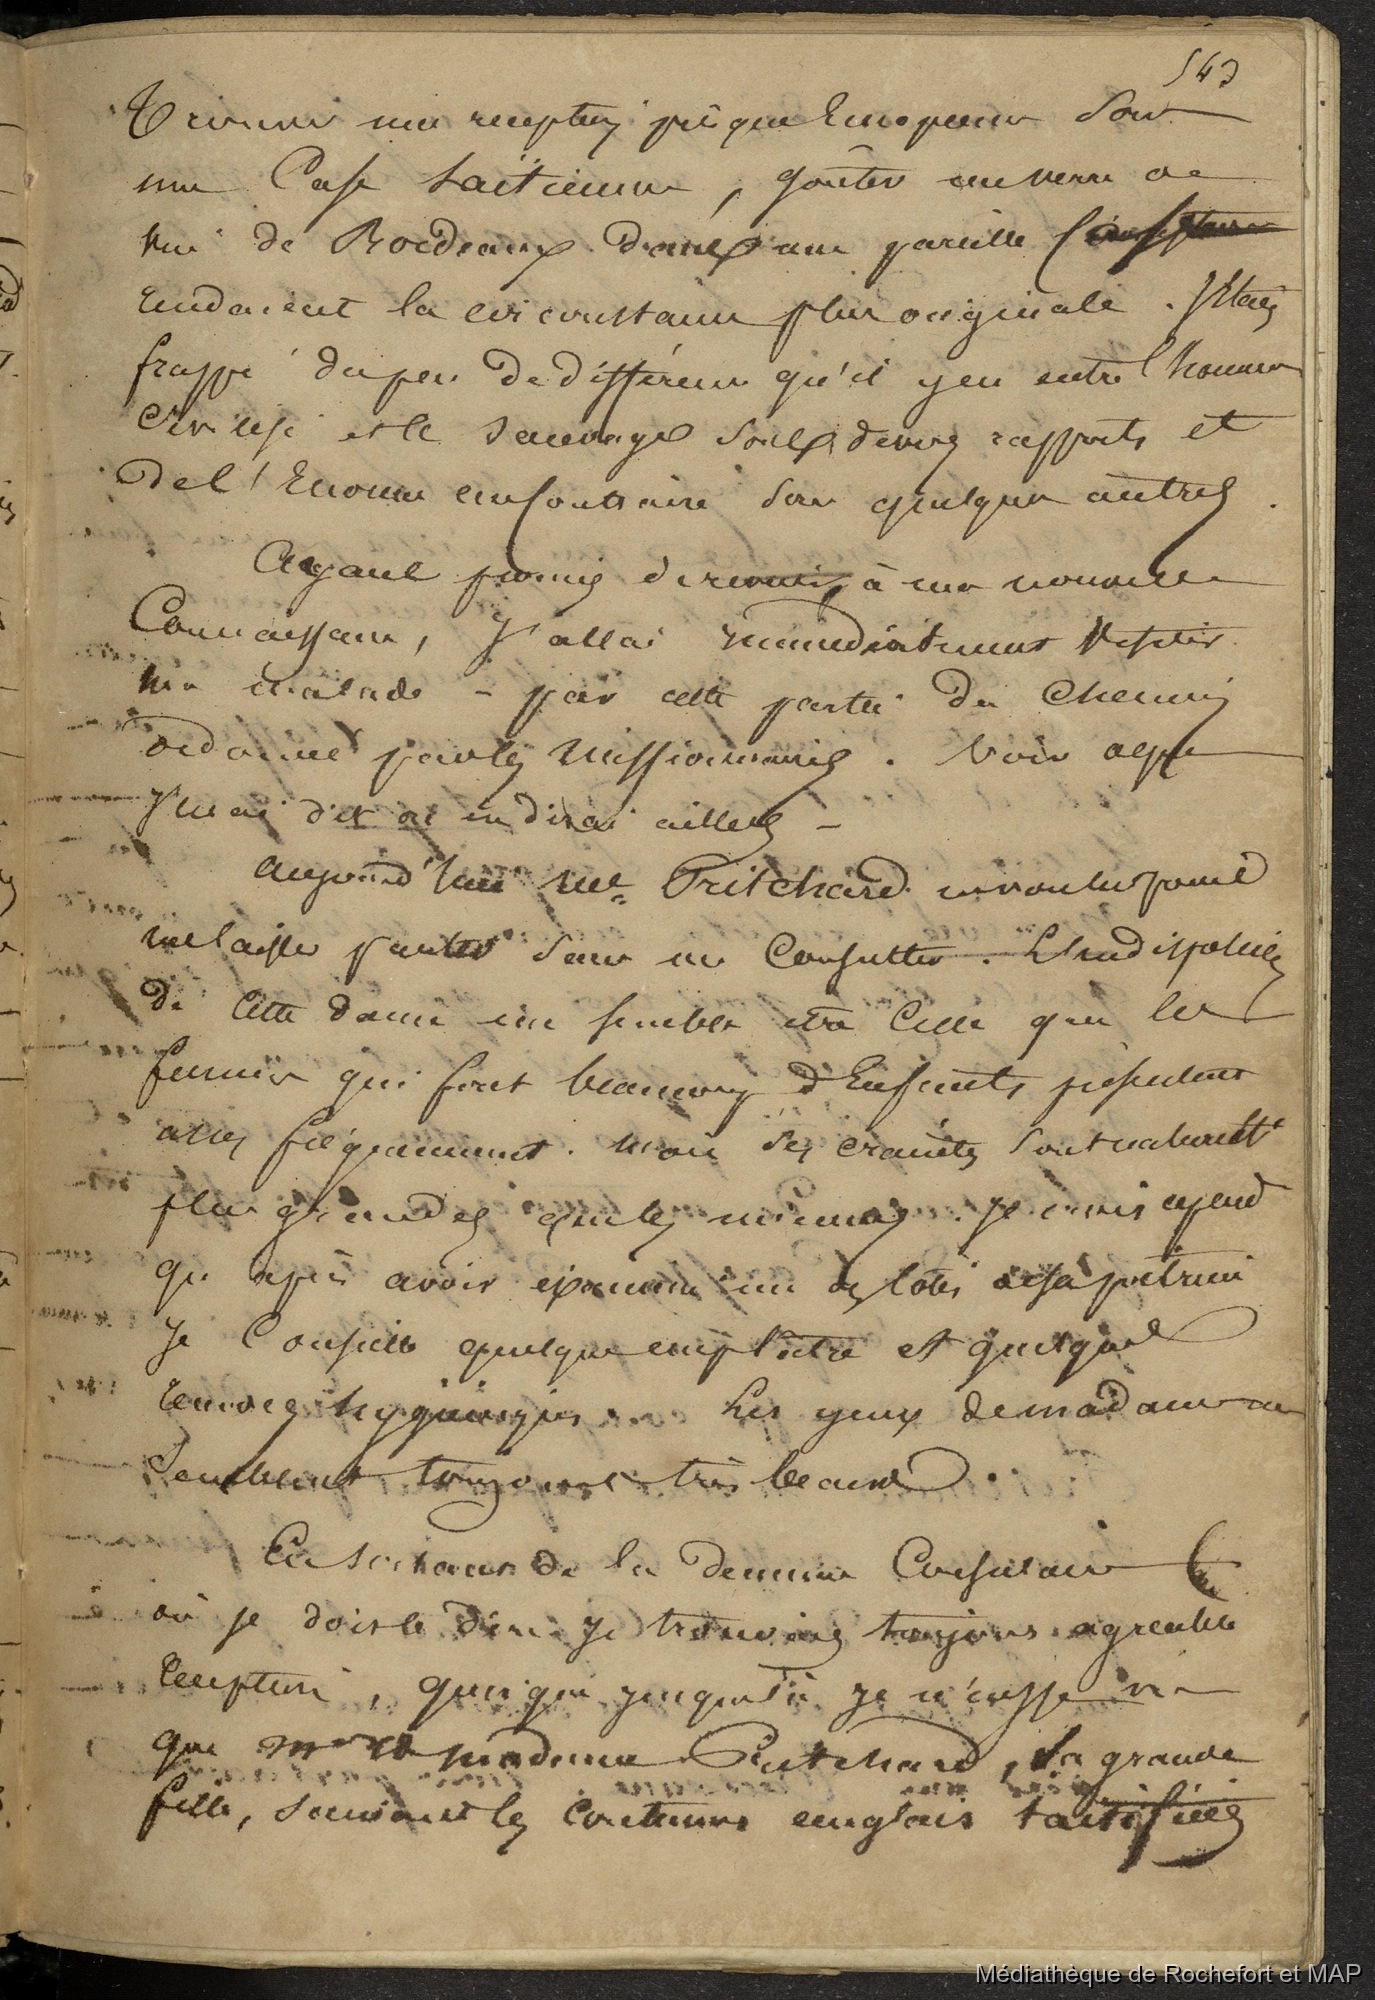 543
Trouver une reception presque Européenne dans
une Case taïtienne, goûter un verre de
vin de Bordeaux dans une pareille
rendaient la circonstance plus originale. J'étais
frappé du peu de différence qu'il y eu entre l'homme
civilisé et le sauvage sous divers rapports et
de l'Enorme au contraire sous quelques autres.
Ayant promis de revenir à ma nouvelle
Connaissance, J'allai immédiatement visiter
ma malade - par cette partie du chemin
ordonné par les Missionnaires. Voir ce que
J'en ai dit et en dirai ailleurs -
aujourd'hui Me Pritchard n'a voulu
me laisser partir sans me Consulter. L'indisposition
de cette dame me semble être celle que les
femmes qui font beaucoup d'Enfants présentent
assez fréquemment. mais ses craintes sont naturellt
plus grandes que les miennes. Je crois cepend
qu'après avoir examiné un des côtés de sa poitrine
Je Conseille quelque emplâtre et quelques
moyens hygieniques. Les yeux de madame me
semblent toujours très beaux.
En sortant de la demeure Consulaire
où je dois le dire je trouvais toujours agréable
réception, quoique jusque là je n'eusse vu
que Mr et madame Pritchard, la grande
fille, suivant les coutumes anglais taïtifiées
Médiathèque de Rochefort et MAP